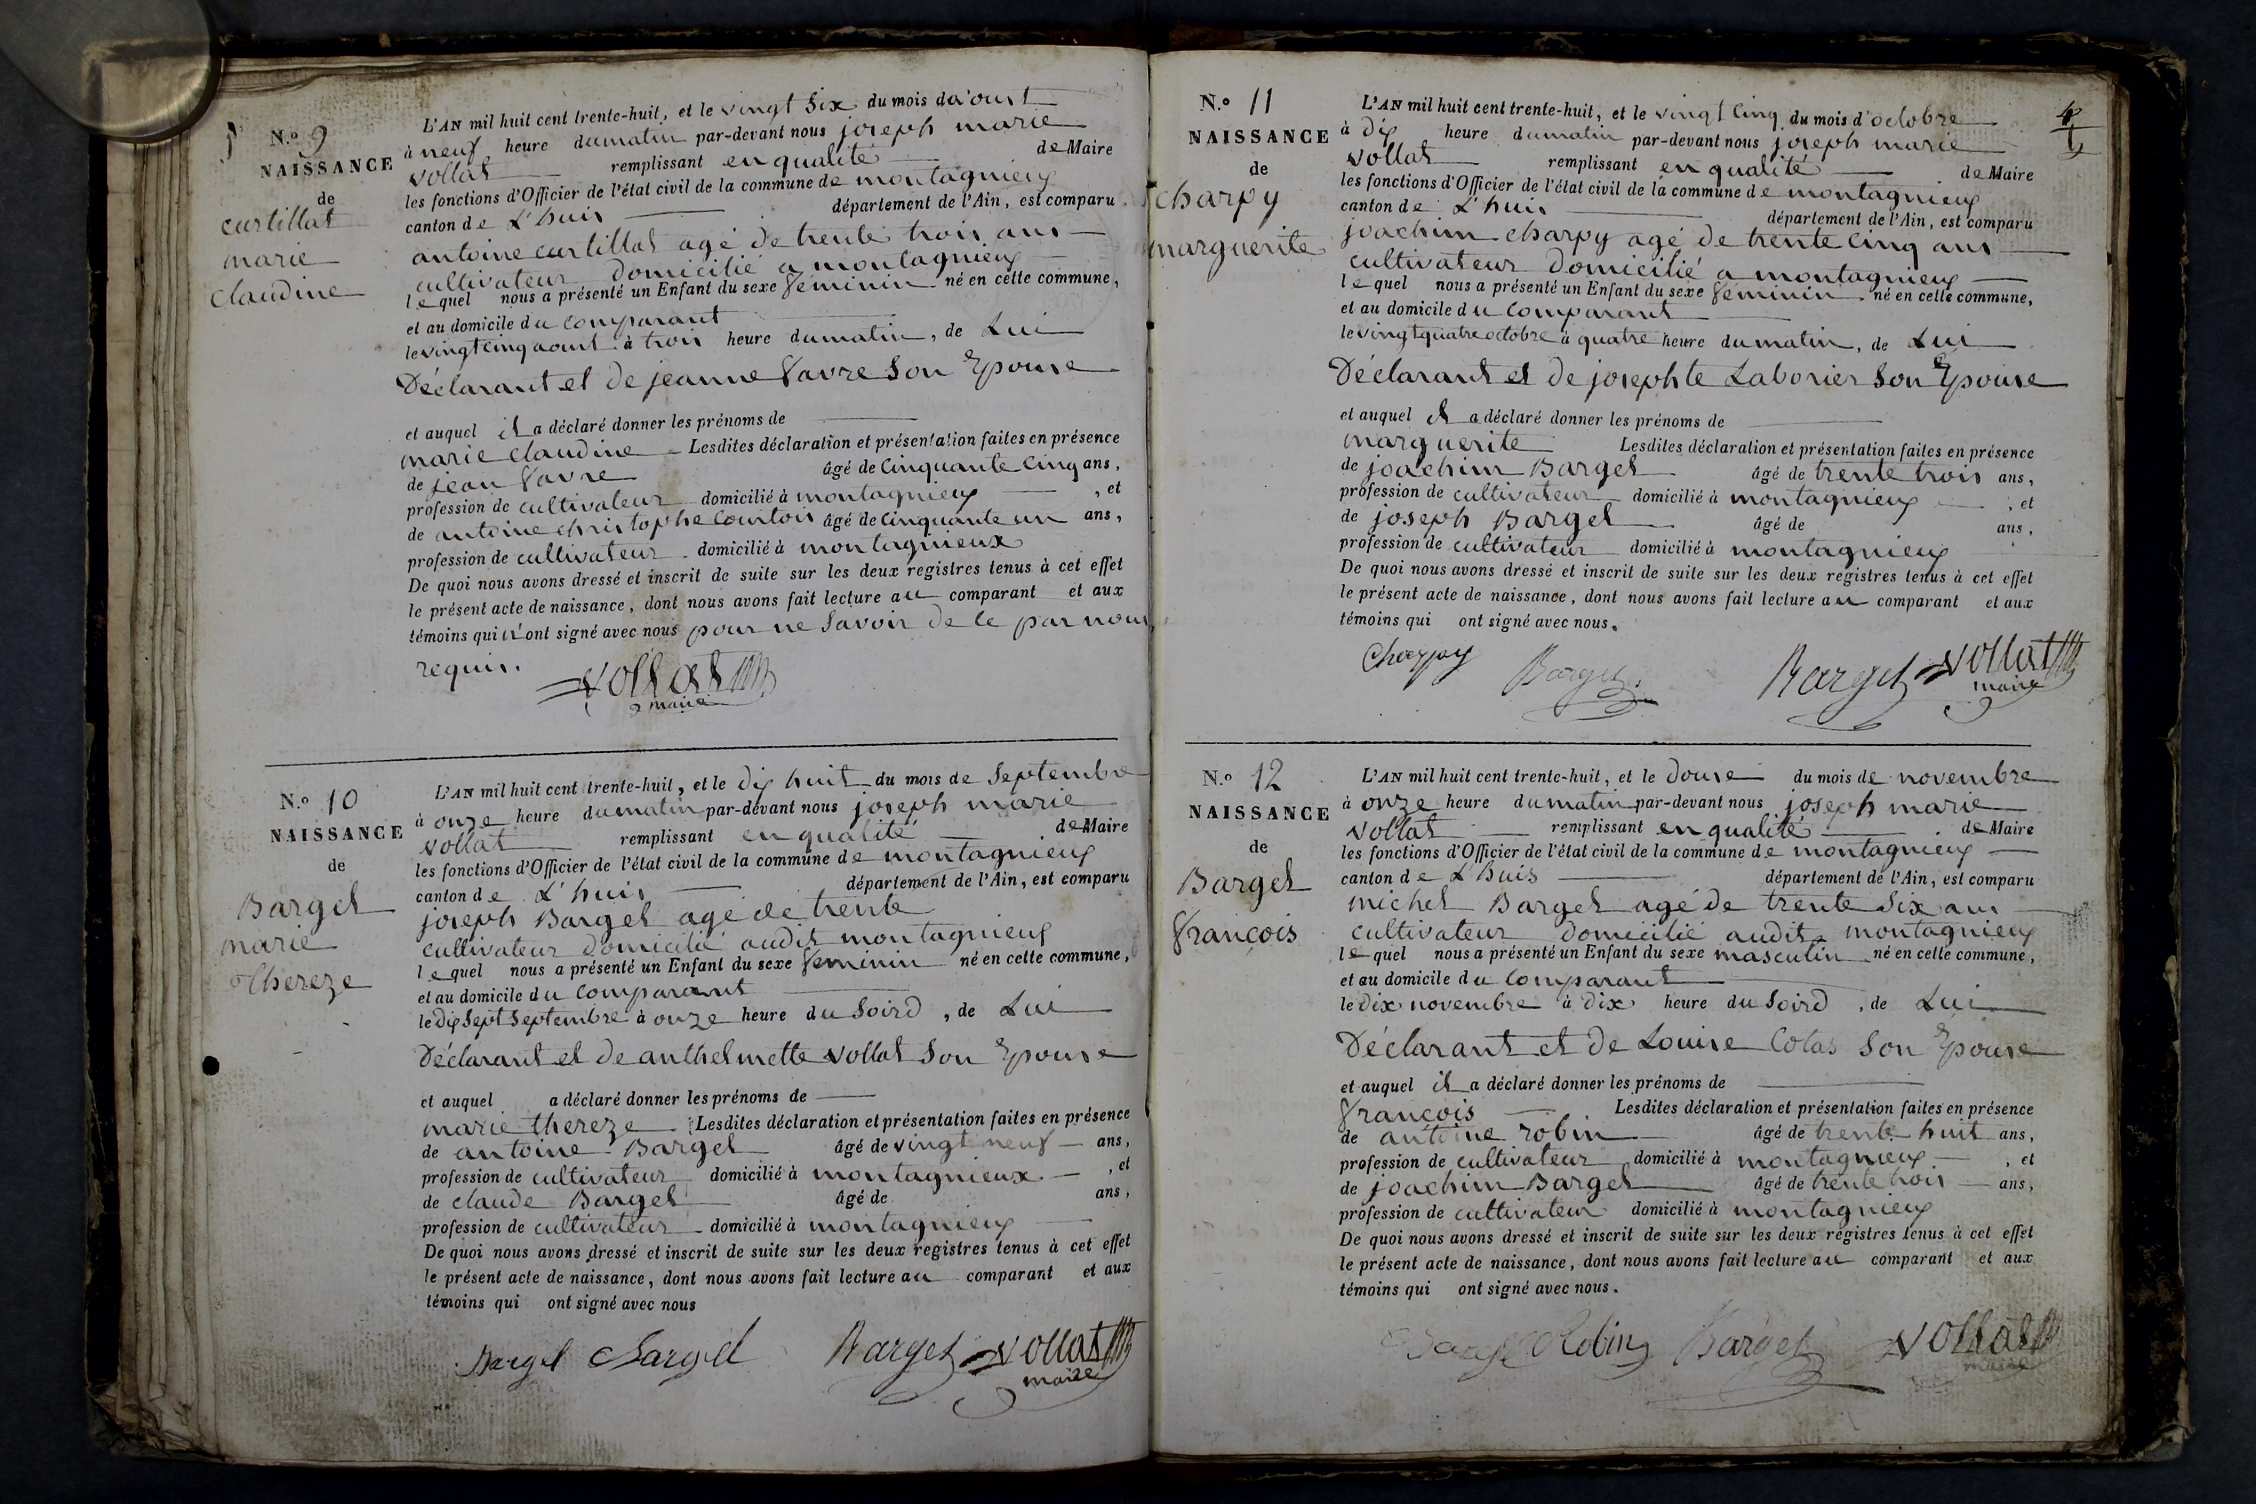 N.o 9
NAISSANCE
de
curtillat
marie
claudine
L'AN mil huit cent trente-huit, et le vingt six du mois d'aoust
à neuf heure du matin par-devant nous joseph marie
vollat remplissant en qualité de Maire
les fonctions d'Officier de l'état civil de la commune de montagnieux
canton de L'huis département de l'Ain, est comparu
antoine curtillat agé de trente trois ans
cultivateur domicilié a montagnieux
lequel nous a présenté un Enfant du sexe feminin né en cette commune,
et au domicile du comparant
le vingt cinq aoust à trois heure du matin, de Lui
Déclarant et de jeanne favre son Epouse
et auquel il a déclaré donner les prénoms de
marie claudine Lesdites déclaration et présentation faites en présence
de jean favre âgé de cinquante cinq ans,
profession de cultivateur domicilié à montagnieux, et
de antoine christophe Courtois âgé de cinquante un ans,
profession de cultivateur domicilié à montagnieux
De quoi nous avons dressé et inscrit de suite sur les deux registres tenus à cet effet
le présent acte de naissance, dont nous avons fait lecture au comparant et aux
témoins qui n'ont signé avec nous pour ne savoir de ce par nous
requis.
vollat
maire
N.o 10
NAISSANCE
de
Barget
marie
Thereze
L'AN mil huit cent trente-huit, et le dix huit du mois de Septembre
à onze heure du matin par-devant nous joseph marie
vollat remplissant en qualité de Maire
les fonctions d'Officier de l'état civil de la commune de montagnieux
canton de L'huis département de l'Ain, est comparu
joseph Barget agé de trente
cultivateur domicilié audit montagnieux
lequel nous a présenté un Enfant du sexe feminin né en cette commune,
et au domicile du comparant
le dix sept septembre à onze heure du soird, de Lui
Déclarant et de anthelmette vollat son Epouse
et auquel a déclaré donner les prénoms de
marie thereze Lesdites déclaration et présentation faites en présence
de antoine Barget âgé de vingt neuf ans,
profession de cultivateur domicilié à montagnieux, et
de claude Barget âgé de ans,
profession de cultivateur domicilié à montagnieux
De quoi nous avons dressé et inscrit de suite sur les deux registres tenus à cet effet
le présent acte de naissance, dont nous avons fait lecture au comparant et aux
témoins qui ont signé avec nous
Barget Barget Barget vollat
maire
N.o 11
NAISSANCE
de
charpy
marguerite
L'AN mil huit cent trente-huit, et le vingt cinq du mois d'octobre
à dix heure du matin par-devant nous joseph marie
vollat remplissant en qualité de Maire
les fonctions d'Officier de l'état civil de la commune de montagnieux
canton de L'huis département de l'Ain, est comparu
joachim charpy agé de trente cinq ans
cultivateur domicilié a montagnieux
lequel nous a présenté un Enfant du sexe feminin né en cette commune,
et au domicile du comparant
le vingt quatre octobre à quatre heure du matin, de Lui
Déclarant et de josephte Laborier son Epouse
et auquel il a déclaré donner les prénoms de
marguerite Lesdites déclaration et présentation faites en présence
de joachim Barget âgé de trente trois ans,
profession de cultivateur domicilié à montagnieux, et
de joseph Barget âgé de ans,
profession de cultivateur domicilié à montagnieux
De quoi nous avons dressé et inscrit de suite sur les deux registres tenus à cet effet
le présent acte de naissance, dont nous avons fait lecture au comparant et aux
témoins qui ont signé avec nous.
Charpy Barget Barget vollat
maire
N.o 12
NAISSANCE
de
Barget
françois
L'AN mil huit cent trente-huit, et le douse du mois de novembre
à onze heure du matin par-devant nous joseph marie
vollat remplissant en qualité de Maire
les fonctions d'Officier de l'état civil de la commune de montagnieux
canton de L'huis département de l'Ain, est comparu
michel Barget agé de trente six ans
cultivateur domicilié audit montagnieux
lequel nous a présenté un Enfant du sexe masculin né en cette commune,
et au domicile du comparant
le dix novembre à dix heure du soird, de Lui
Déclarant et de Louise Colas son Epouse
et auquel il a déclaré donner les prénoms de
françois Lesdites déclaration et présentation faites en présence
de antoine robin âgé de trente huit ans,
profession de cultivateur domicilié à montagnieux, et
de joachim Barget âgé de trente trois ans,
profession de cultivateur domicilié à montagnieux
De quoi nous avons dressé et inscrit de suite sur les deux registres tenus à cet effet
le présent acte de naissance, dont nous avons fait lecture au comparant et aux
témoins qui ont signé avec nous.
Robin Barget vollat
maire